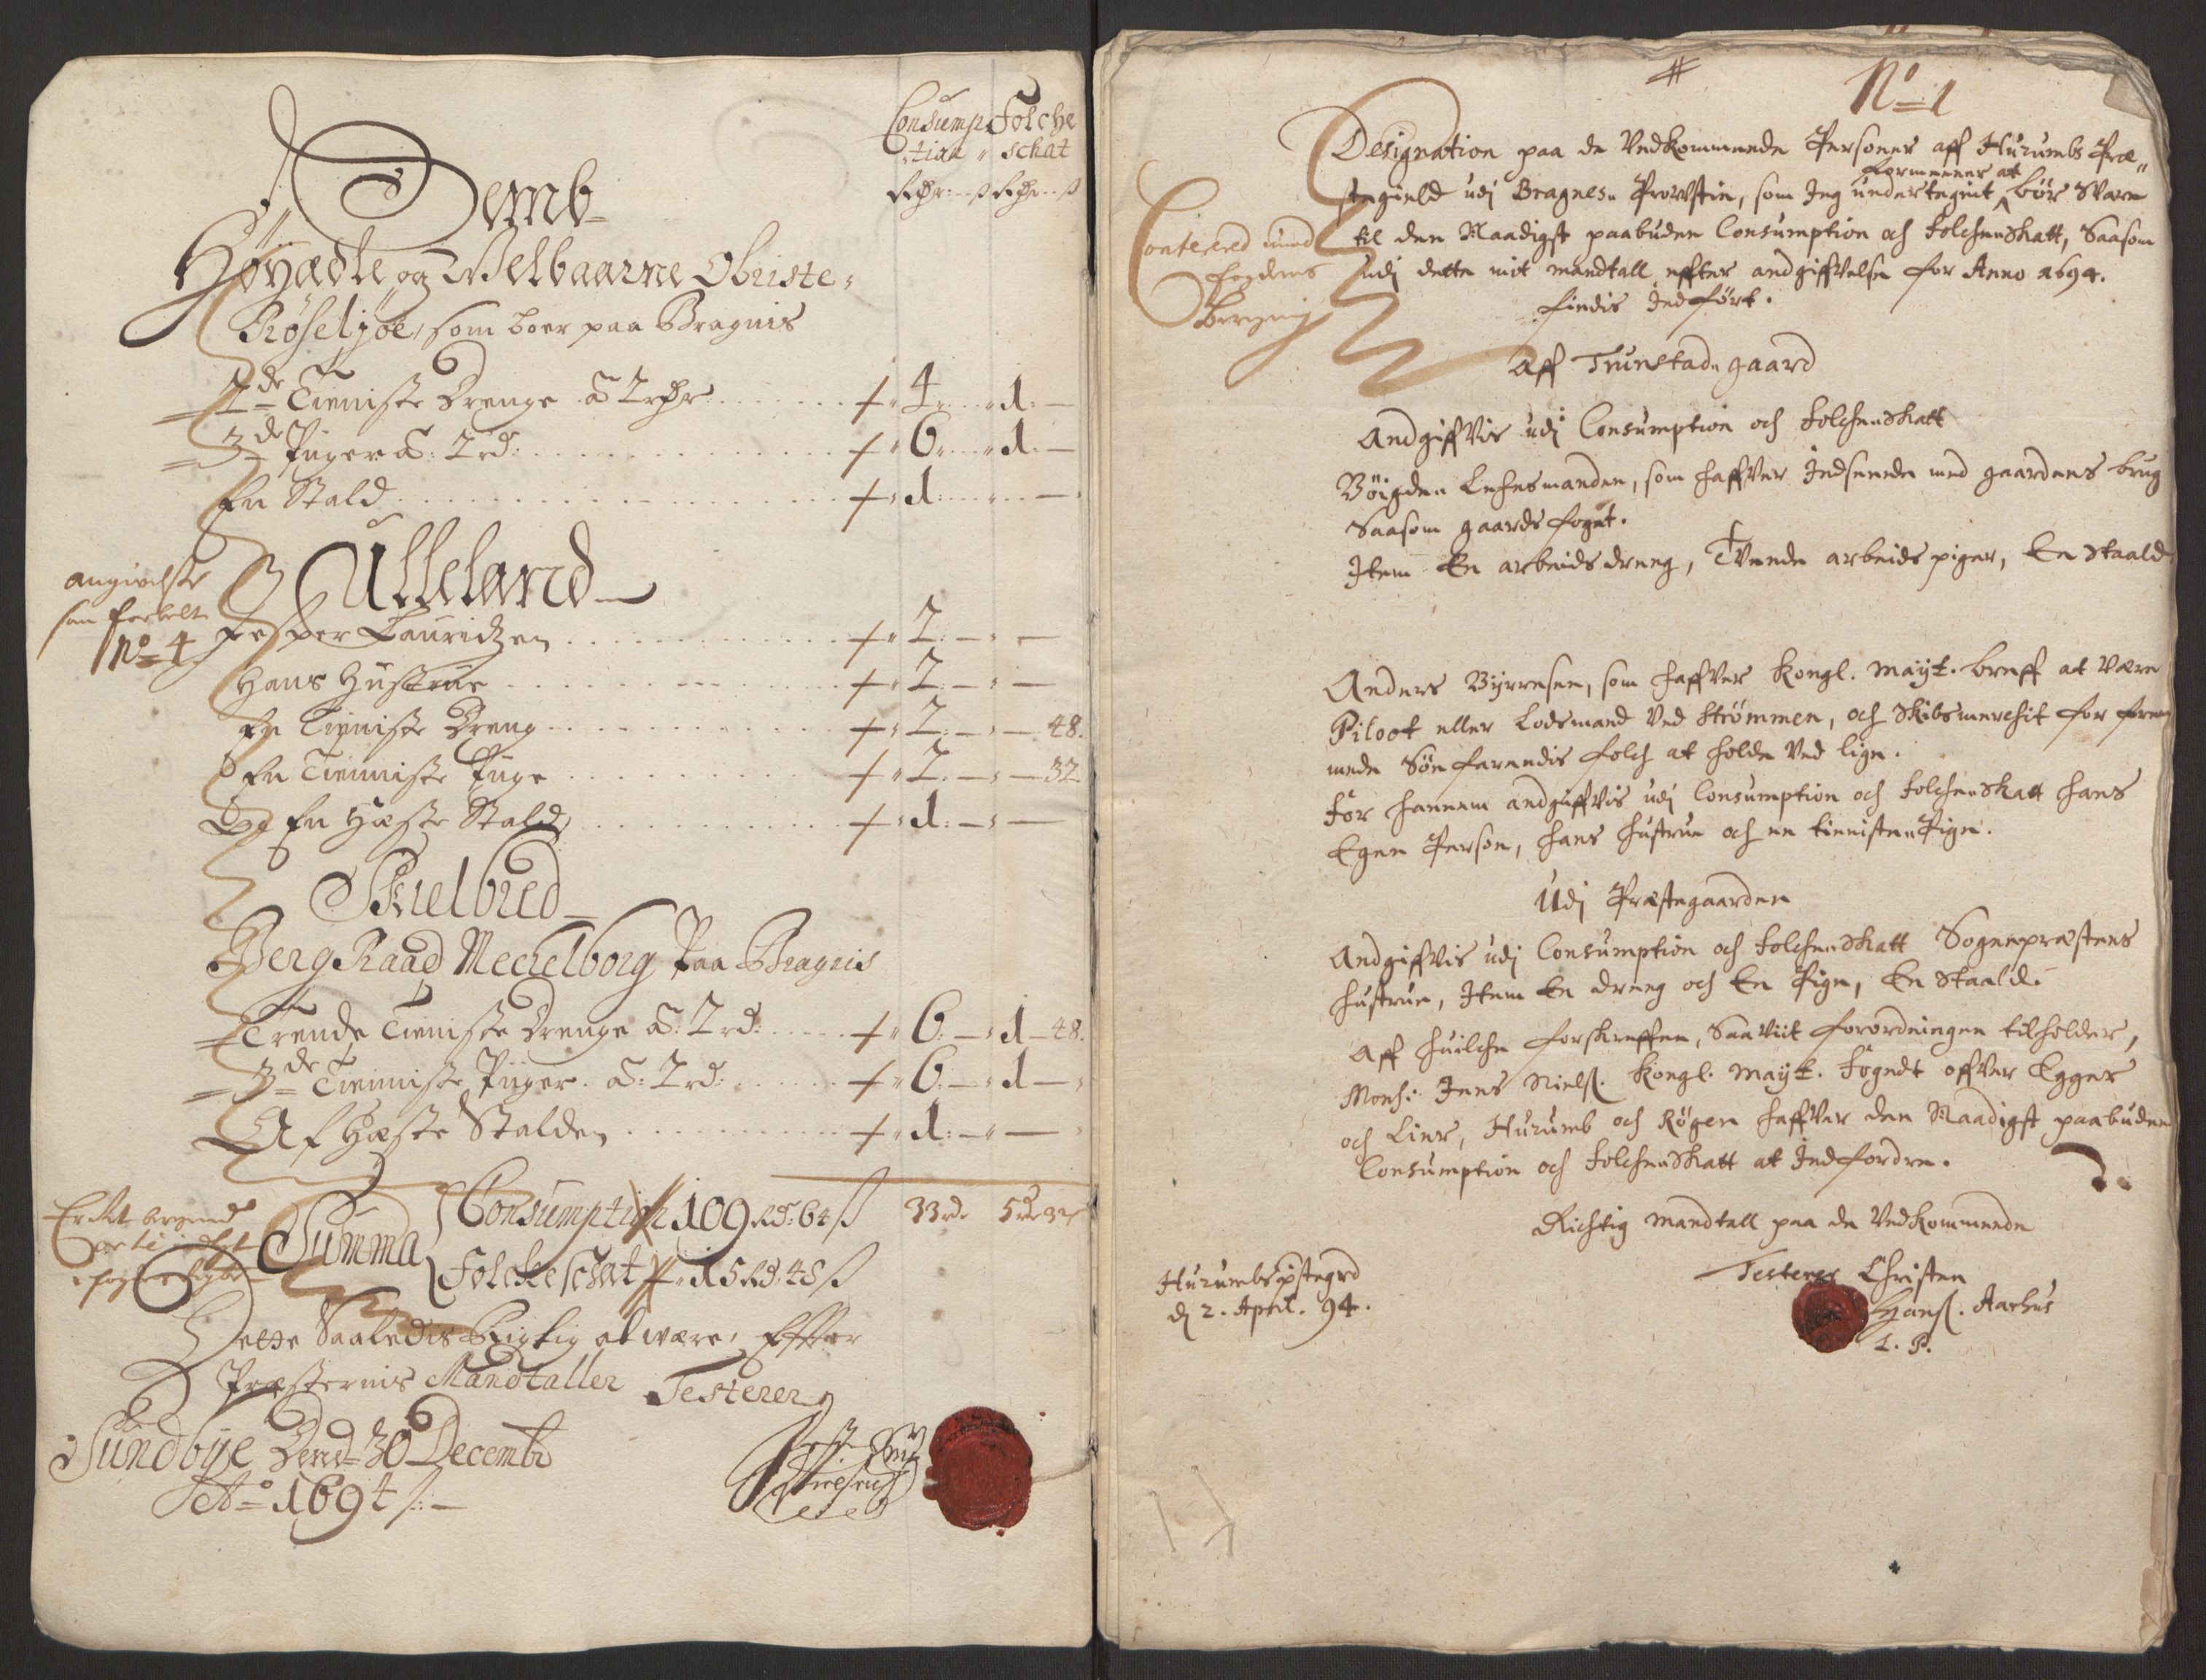 Consump Folche
tion " schat
Rdr: ß Rdr: ß
Semb
Høyædle og Welbaarne Obriste
Røseljøe, som boer paa Bragnis
2de Tieniste Drenge a 2 rdr + 4 1
3de Piger a: 2 rd: + 6 1
En Stald + 1
Ulleland
angivelse
No 4
Jesper Lauridzen + 2
Hans Hustrue + 2
En Tieniste Dreng + 2 48
En Tieniste Pige + 2 32
Og En Hæste Stald + 1
Skielbred
Berg Raad Mechelborg Paa Bragnis
Trende Tieniste Drenge a: 2 rd: + 6 1 48
3de Tieniste Piger. a: 2 rd: + 6 1
Af Hæste Stalden + 1
Summa
Consumption 109 Rd: 64 ß 33 rd 5 rd 32 ß
Folcke schat 15 Rd 48 ß
Dette Saaledis Rigtig at være, Effter
Præsternis Mandtaller Testerer
Sundbye Dend 30 Decembr
Ao 1694
No 1
Designation paa de Vedkommende Personer aff Hurumbs Præ
formeener at
stegield udj Bragnes Provstie, som Jeg undertegnt bør Svare
til den Naadigst paabuden Consumption och Folche Skatt, Saasom
udj dette mit mandtall effter andgiffvelse for Anno 1694.
findis Indført.
Conterered med
fogdens
Aff Trunstad gaard
Andgiffvis udj Consumption och Folche Skatt
Bøigde Lehnsmanden, som haffver Indseende med gaardens brug
Saasom gaards fogët.
Item En arbeids dreng, Tvende arbeids piger, En Staald
Anders Byrresen, som haffver Kongl. Mayt. breff at være
Piloot eller Lodsmand Ved Strömmen, och Skibs merchit for frem
mede Söe farendis folch at holde Ved lige.
For hannem andgiffvis udj Consumption och Folche Skatt hans
Egen Person, hans hustrue och en tieniste Pige.
Udj Præstegaarden
Andgiffvis udj Consumption och Folche Skatt Sognepræstens
hustrue, Item En dreng och En Pige, En Staald.
Aff huilche forskreffne, Saa vit forordningen tilholder,
Monsr: Jens Nielß. Kongl. Mayt. Fogedt offver Egger
och Lier, Hurumb och Røgen haffver den Naadigst paabuden
Consumption och Folche Skatt at Indfordre.
Richtig mandtall paa de Vedkommende
Hurumbs pstegrd
d 2. April. 94.
Testerer Christen
Hanß. Aarhus
L. S.